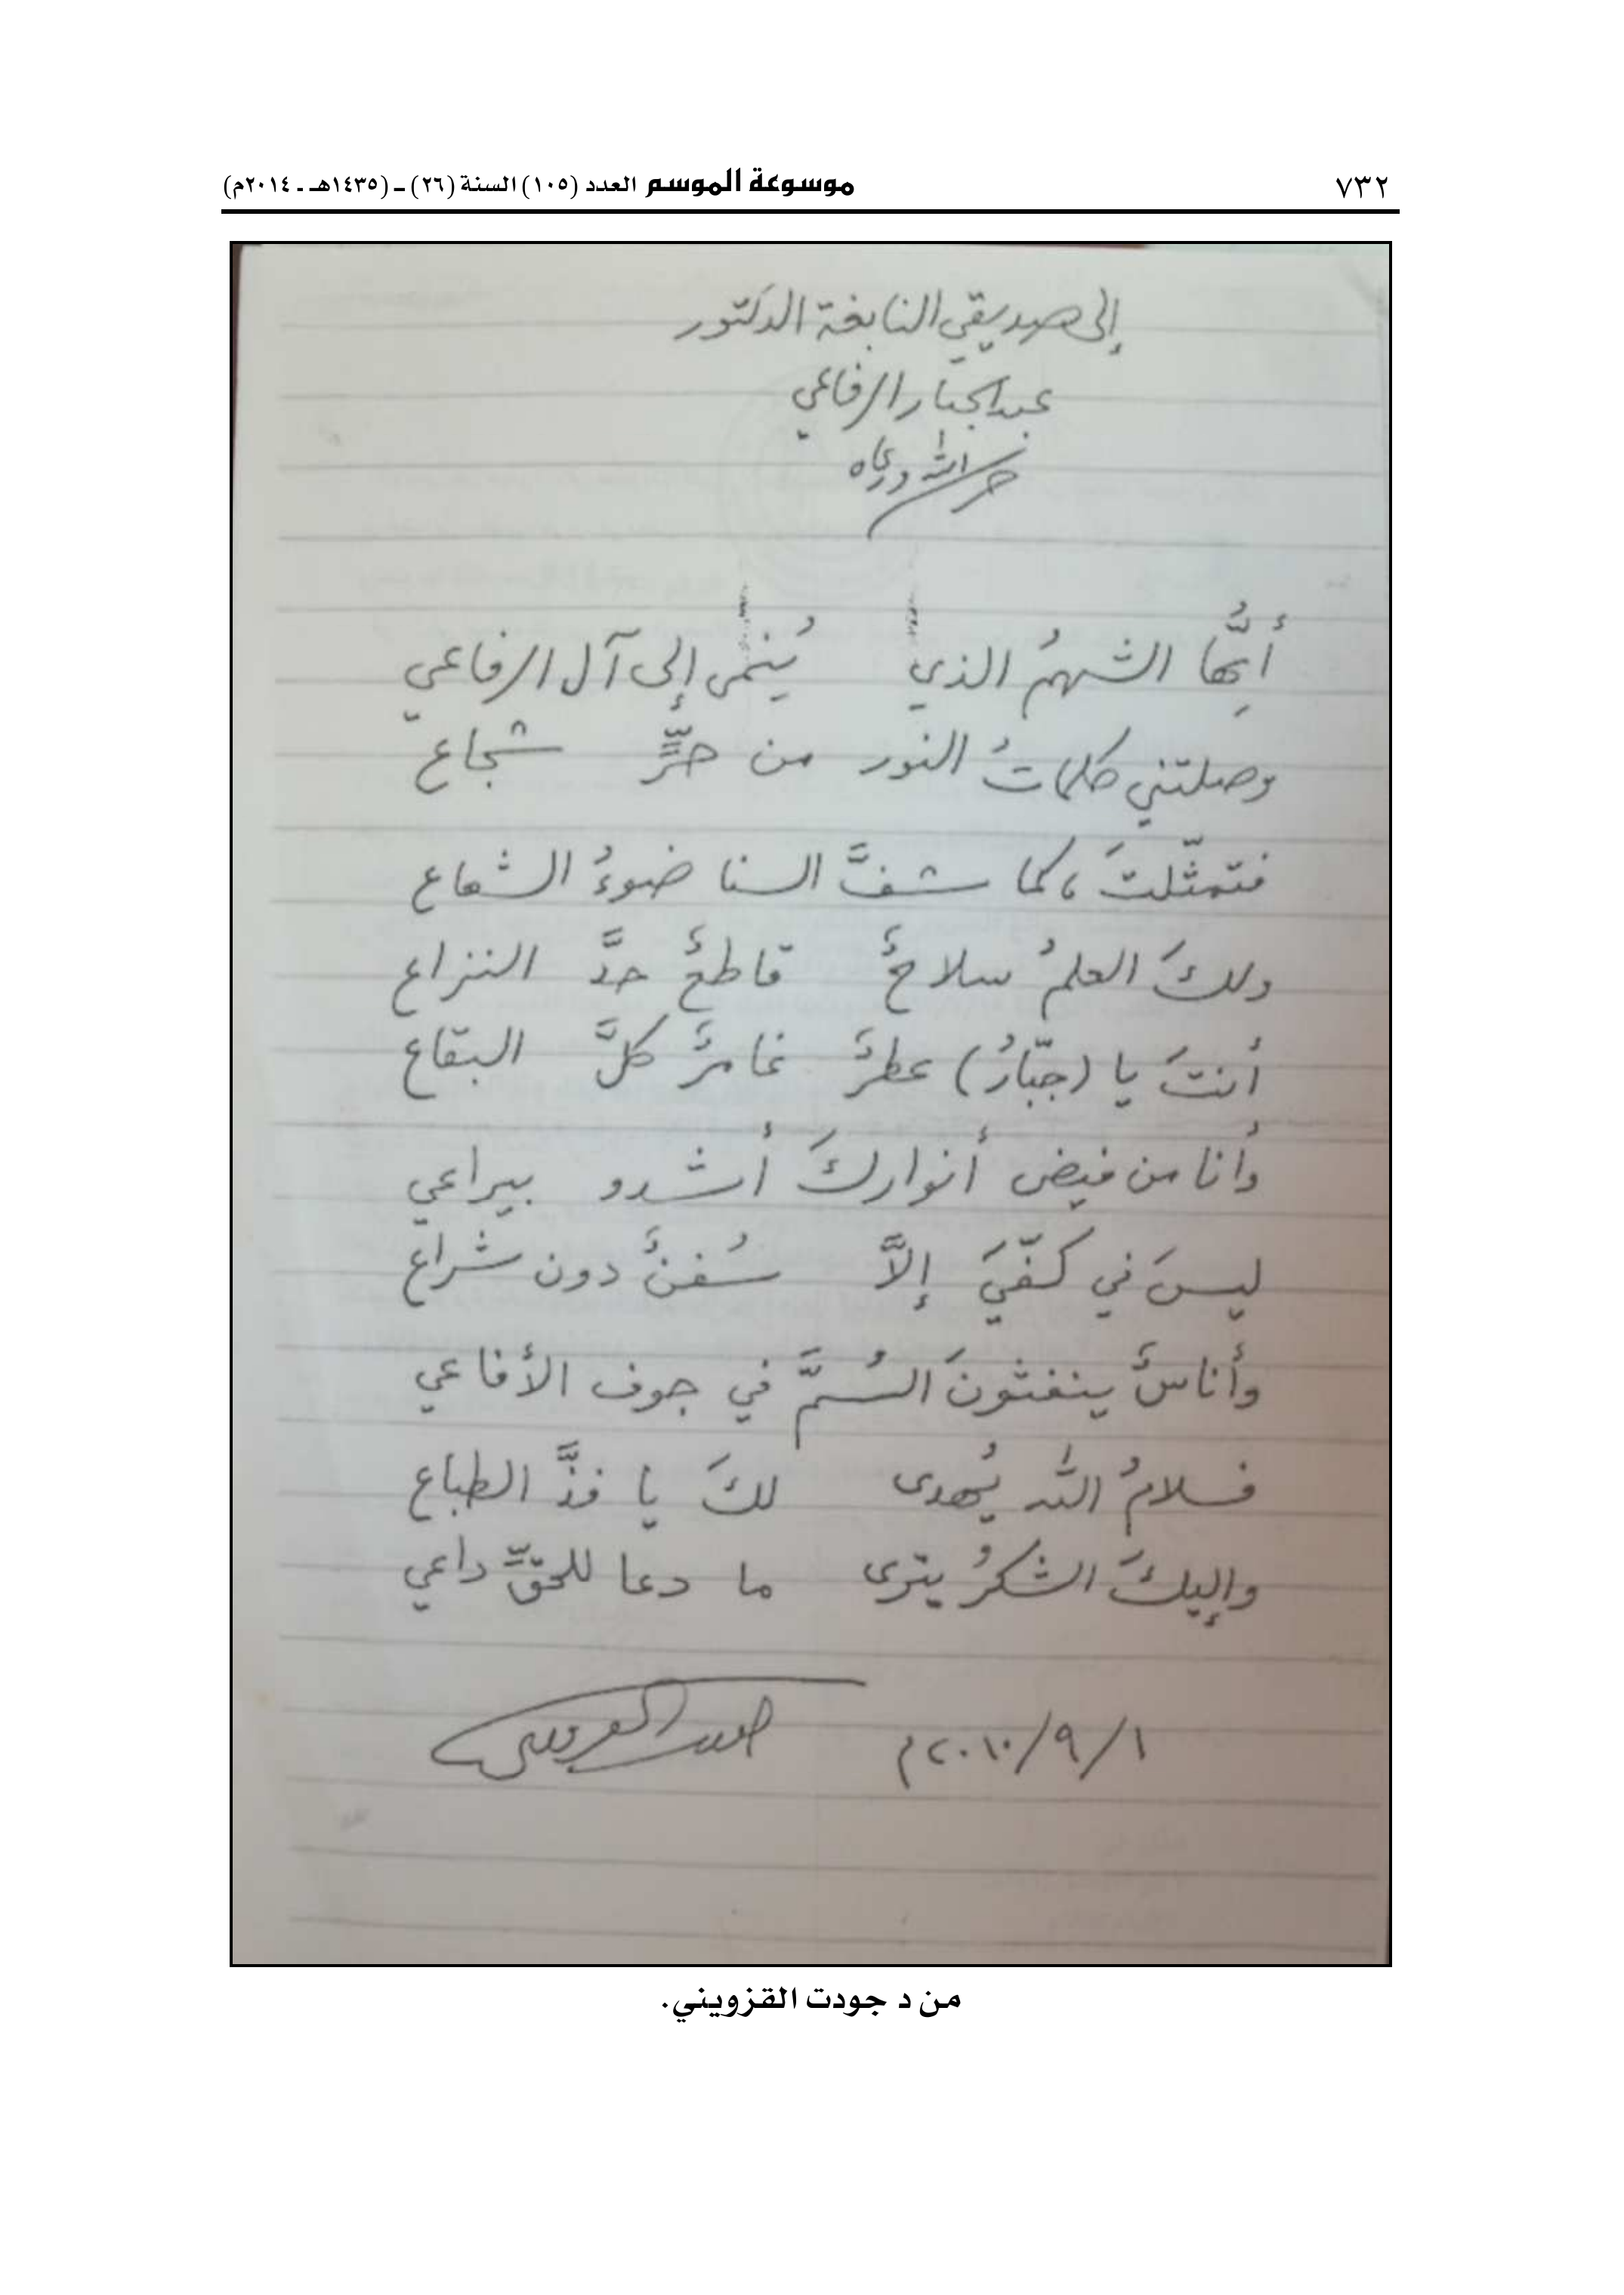 ٧٣٢ موسوعة الموسم العدد (١٠٥) السنة (٢٦) ـ (١٤٣٥هـ ـ ٢٠١٤م)
إلى صديقي النابغة الدكتور
عبدالجبار الرفاعي
حرسه الله ورعاه
أيُّها الشهمُ الذي يُنمى إلى آل الرفاعي
وصلتني كلماتُ النور من حرٍّ شجاع
فتمثّلتَ، كما شفَّ السنا ضوءُ الشعاع
ولكَ العلمُ سلاحٌ قاطعٌ حدَّ النزاع
أنتَ يا (جبّارُ) عطرٌ غامرٌ كلَّ البقاع
وأنا من فيض أنواركَ أشدو بيراعي
ليسَ في كفّيَ إلاَّ سُفنٌ دون شراع
وأناسٌ ينفثونَ السُمَّ في جوف الأفاعي
فسلامُ الله يُهدى لكَ يا فذَّ الطباع
وإليكَ الشكرُ يترى ما دعا للحقِّ داعي
١/٩/٢٠١٠م
من د جودت القزويني.